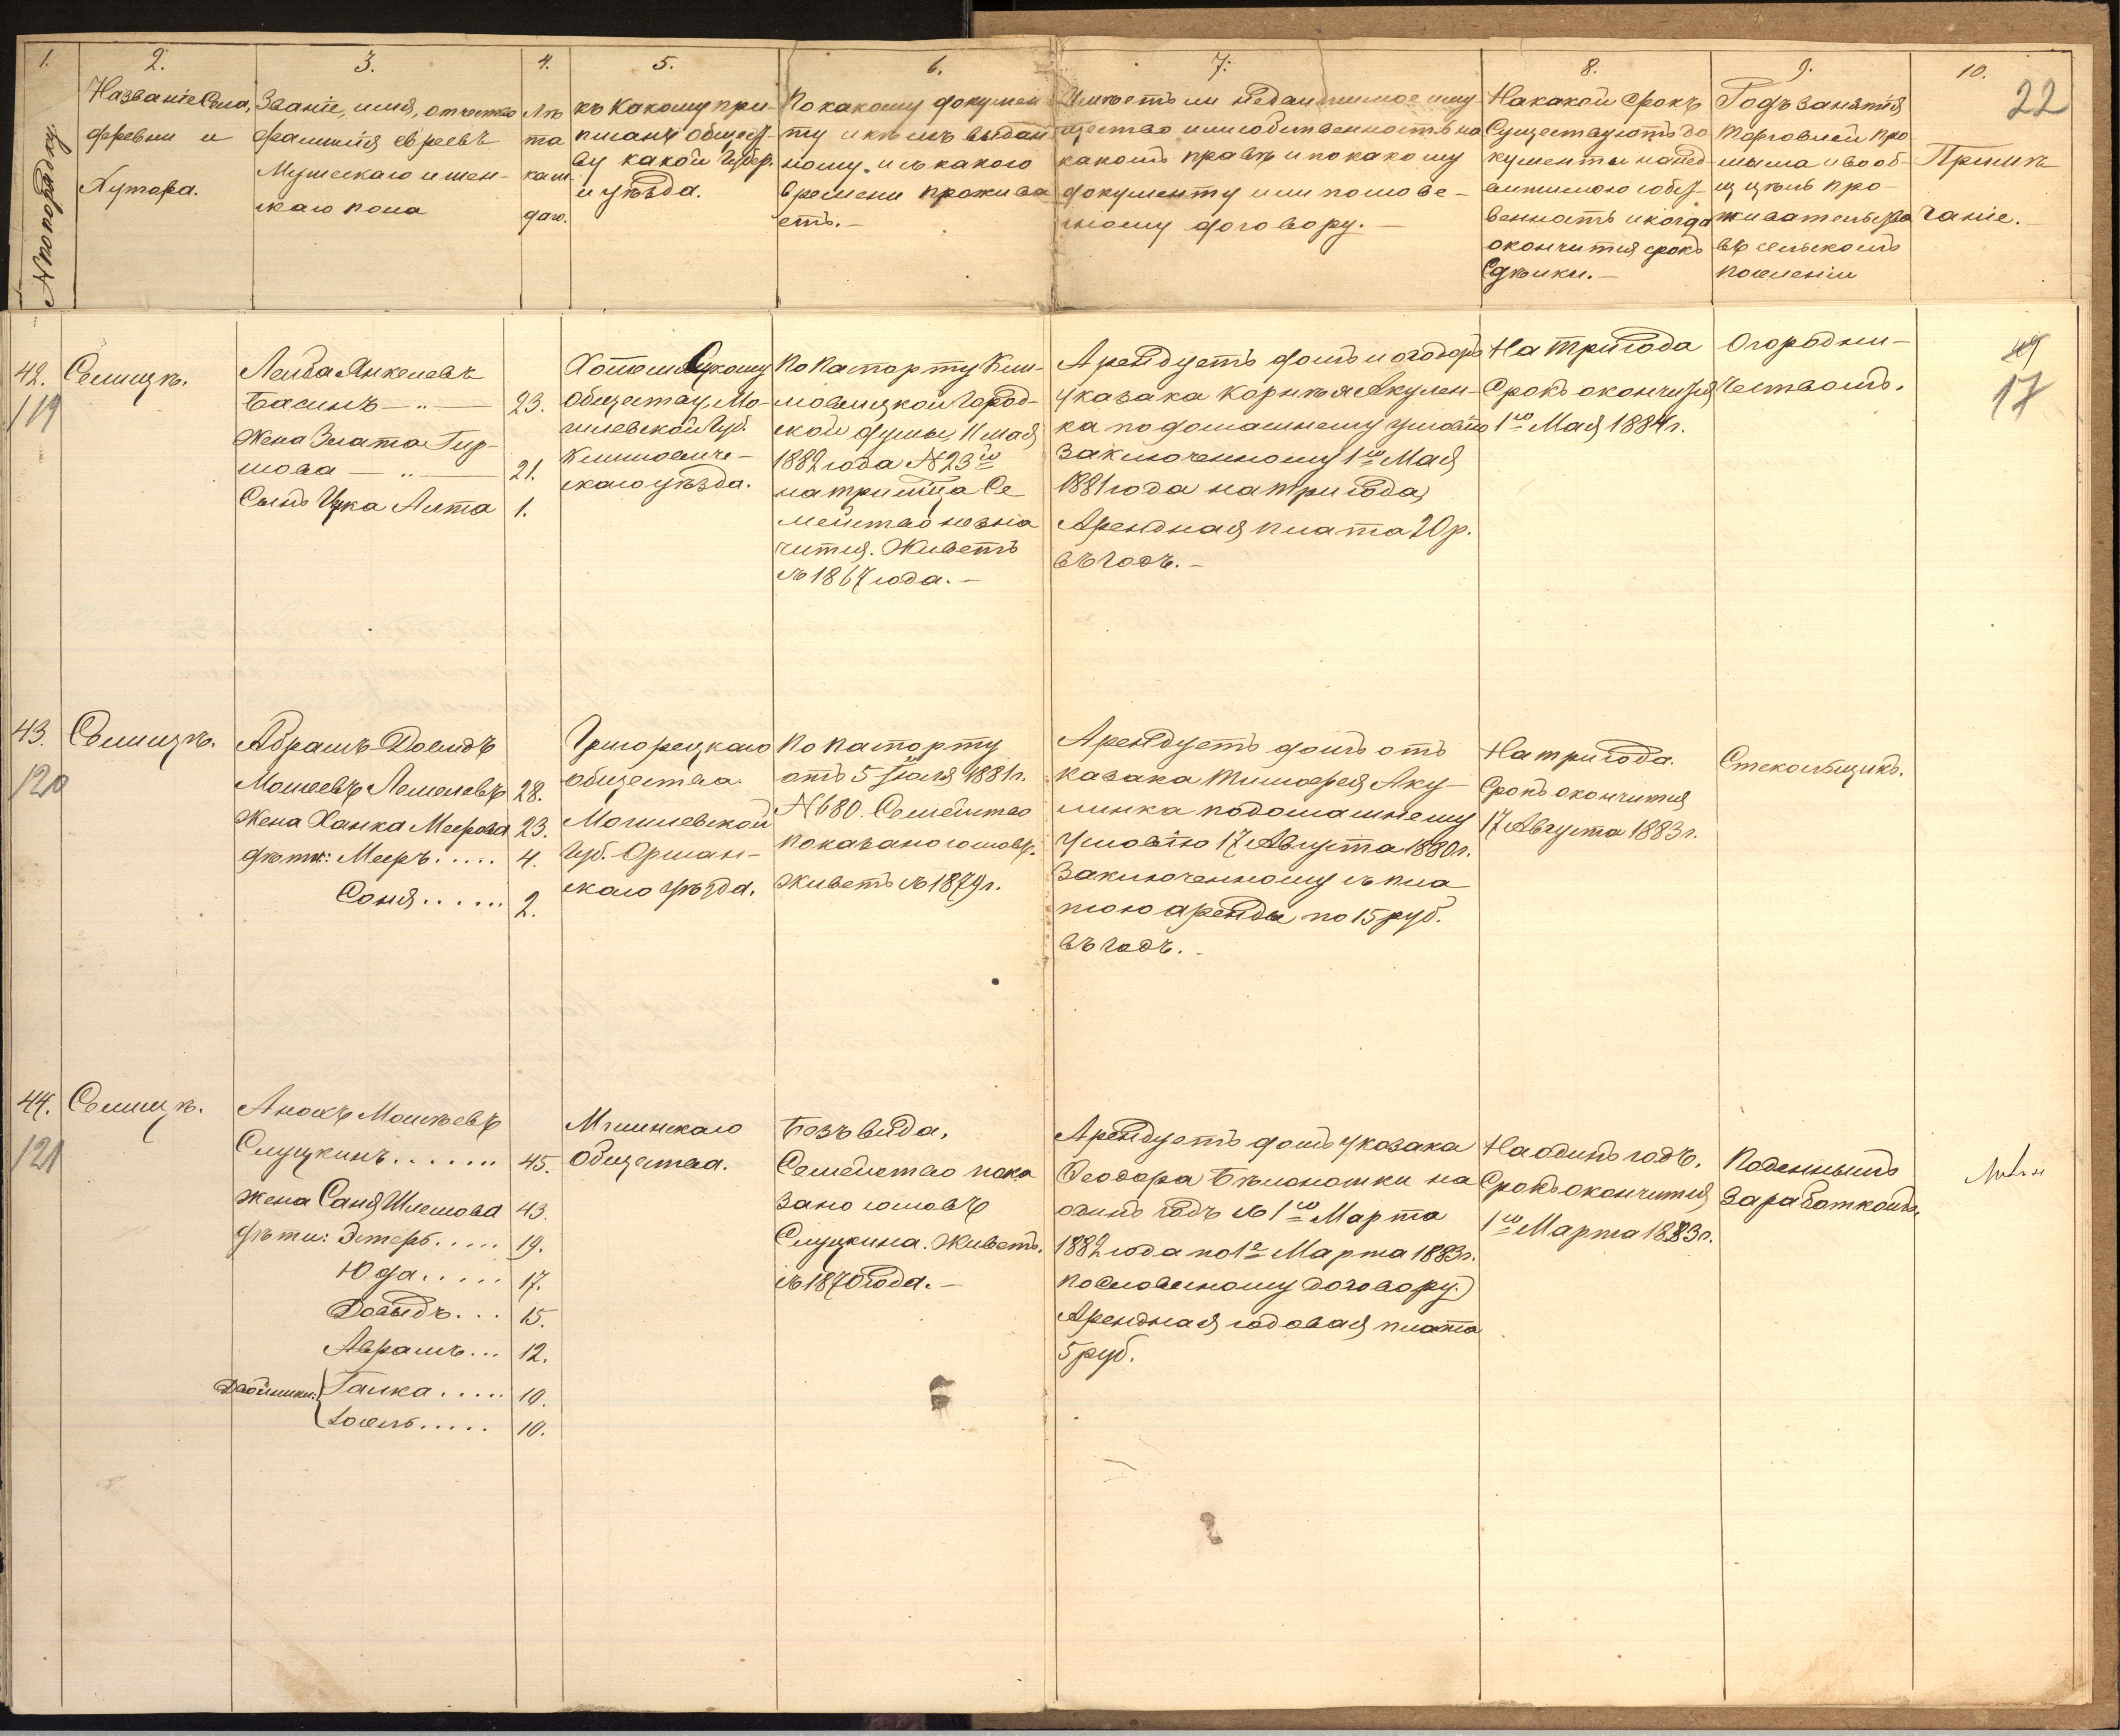 1.
№ по порядку.
2.
Названіе Села,
деревни и
Хутора.
3.
Званіе, имя, отчество
фамилія евреевъ
Мужескаго и жен-
скаго пола
4.
Лѣ
та
каж
даго.
5.
къ какому при-
писанъ общест-
ву какой Губер.
и уѣзда.
6.
По какому докумен
ту и кѣмъ выдан
ному. и съ какого
времени прожива
етъ.-
7.
Имѣетъ ли недвижимое иму
щество или собственность на
какомъ правѣ и по какому
документу или по слове-
сному договору. -
8.
На какой срокъ
Существуютъ до
кументы на нед
вижимою собст-
венность и когда
окончится срокъ
Сдѣлки. -
9.
Родъ занятія
торговлей про
мысла и вооб-
ще цѣль про-
живательства
въ сельскомъ
поселеніи
10.
Примѣ
чаніе. -
22
42.
119
Селищѣ.
Лейба Янкелевъ
Басинъ - „ - 23.
Жена Злата Гир-
шова - „ - 21.
Сынъ Ицка Алта 1.
Хотимскому
Обществу, Мо-
гилевской Губ.
Климовиче-
скаго уѣзда.
По Паспорту Кли-
мовицкой Город-
ской думы, 11 Мая
1882 года № 23го
на три мѣсяца Се
мейство не зна
чится. Живетъ
съ 1867 года. -
Арендуетъ домъ и огородъ
у казака Корнѣя Акулен-
ка по домашнему условію
Заключенному 1го Мая
1881 года на три года,
Арендная плата 20 р.
въ годъ. -
На три года
Срокъ окончится
1го Мая 1884 г.
Огородни-
чествомъ.
17
43.
120
Селищѣ.
Абрамъ-Довидъ
Мошеевъ 28.
Жена Ханка Меерова 23.
дѣти: Мееръ..... 4.
Соня...... 2.
Григорецкаго
общества.
Могилевской
Губ. Оршан-
скаго уѣзда.
По паспорту
отъ 5 Іюля 1881 г.
№ 680. Семейство
показано со словъ.
Живетъ съ 1879 г.
Арендуетъ домъ отъ
казака Тимофея Аку-
линка по домашнему
Условію 17 Августа 1880 г.
Заключенному съ пла
тою аренды по 15 руб.
въ годъ. -
На три года.
Срокъ окончится
17 Августа 1883 г.
Стекольщикъ.
44.
121
Селищѣ.
Мошѣевъ
Слуцкинъ....... 45.
Жена Саня Шлемова 43.
дѣти: Эстеръ..... 19.
Юда..... 17.
Довыдъ... 15.
Аврамъ... 12.
Двойники: Галка..... 10.
Іосель..... 10.
Мглинскаго
Общества.
Безъ вида.
Семейство пока
зано со словъ
Слуцкина. Живетъ.
съ 1870 года. -
Арендуетъ домъ у козака
Ѳеодора Бѣлоножки на
одинъ годъ съ 1го Марта
1882 года по 1е Марта 1883 г.
по Словесному договору.
Арендная годовая плата
5 руб.
На одинъ годъ.
Срокъ окончится
1го Марта 1883 г.
Поденнымъ
Заработкомъ.